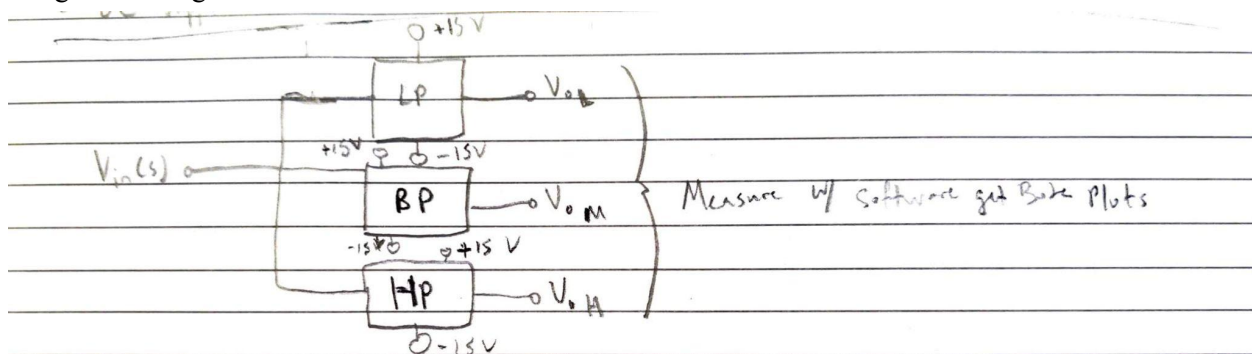 +15V
LP
V₀L
+15V
-15V
Vin(s)
BP
V₀M
Measure w/ Software get Bode Plots
-15V
+15 V
HP
V₀H
-15V